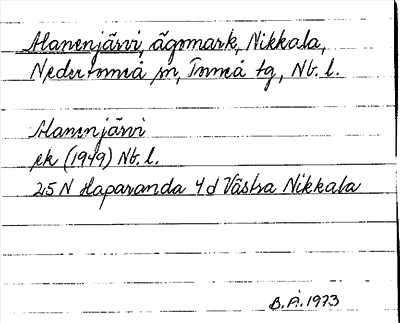 Alanenjärvi, ägomark, Nikkala,
Nedertorneå sn, Torneå tg, Nb. l.
Alanenjärvi
ek (1949) Nb. l.
25 N Haparanda 4 d Västra Nikkala
B. Å. 1973